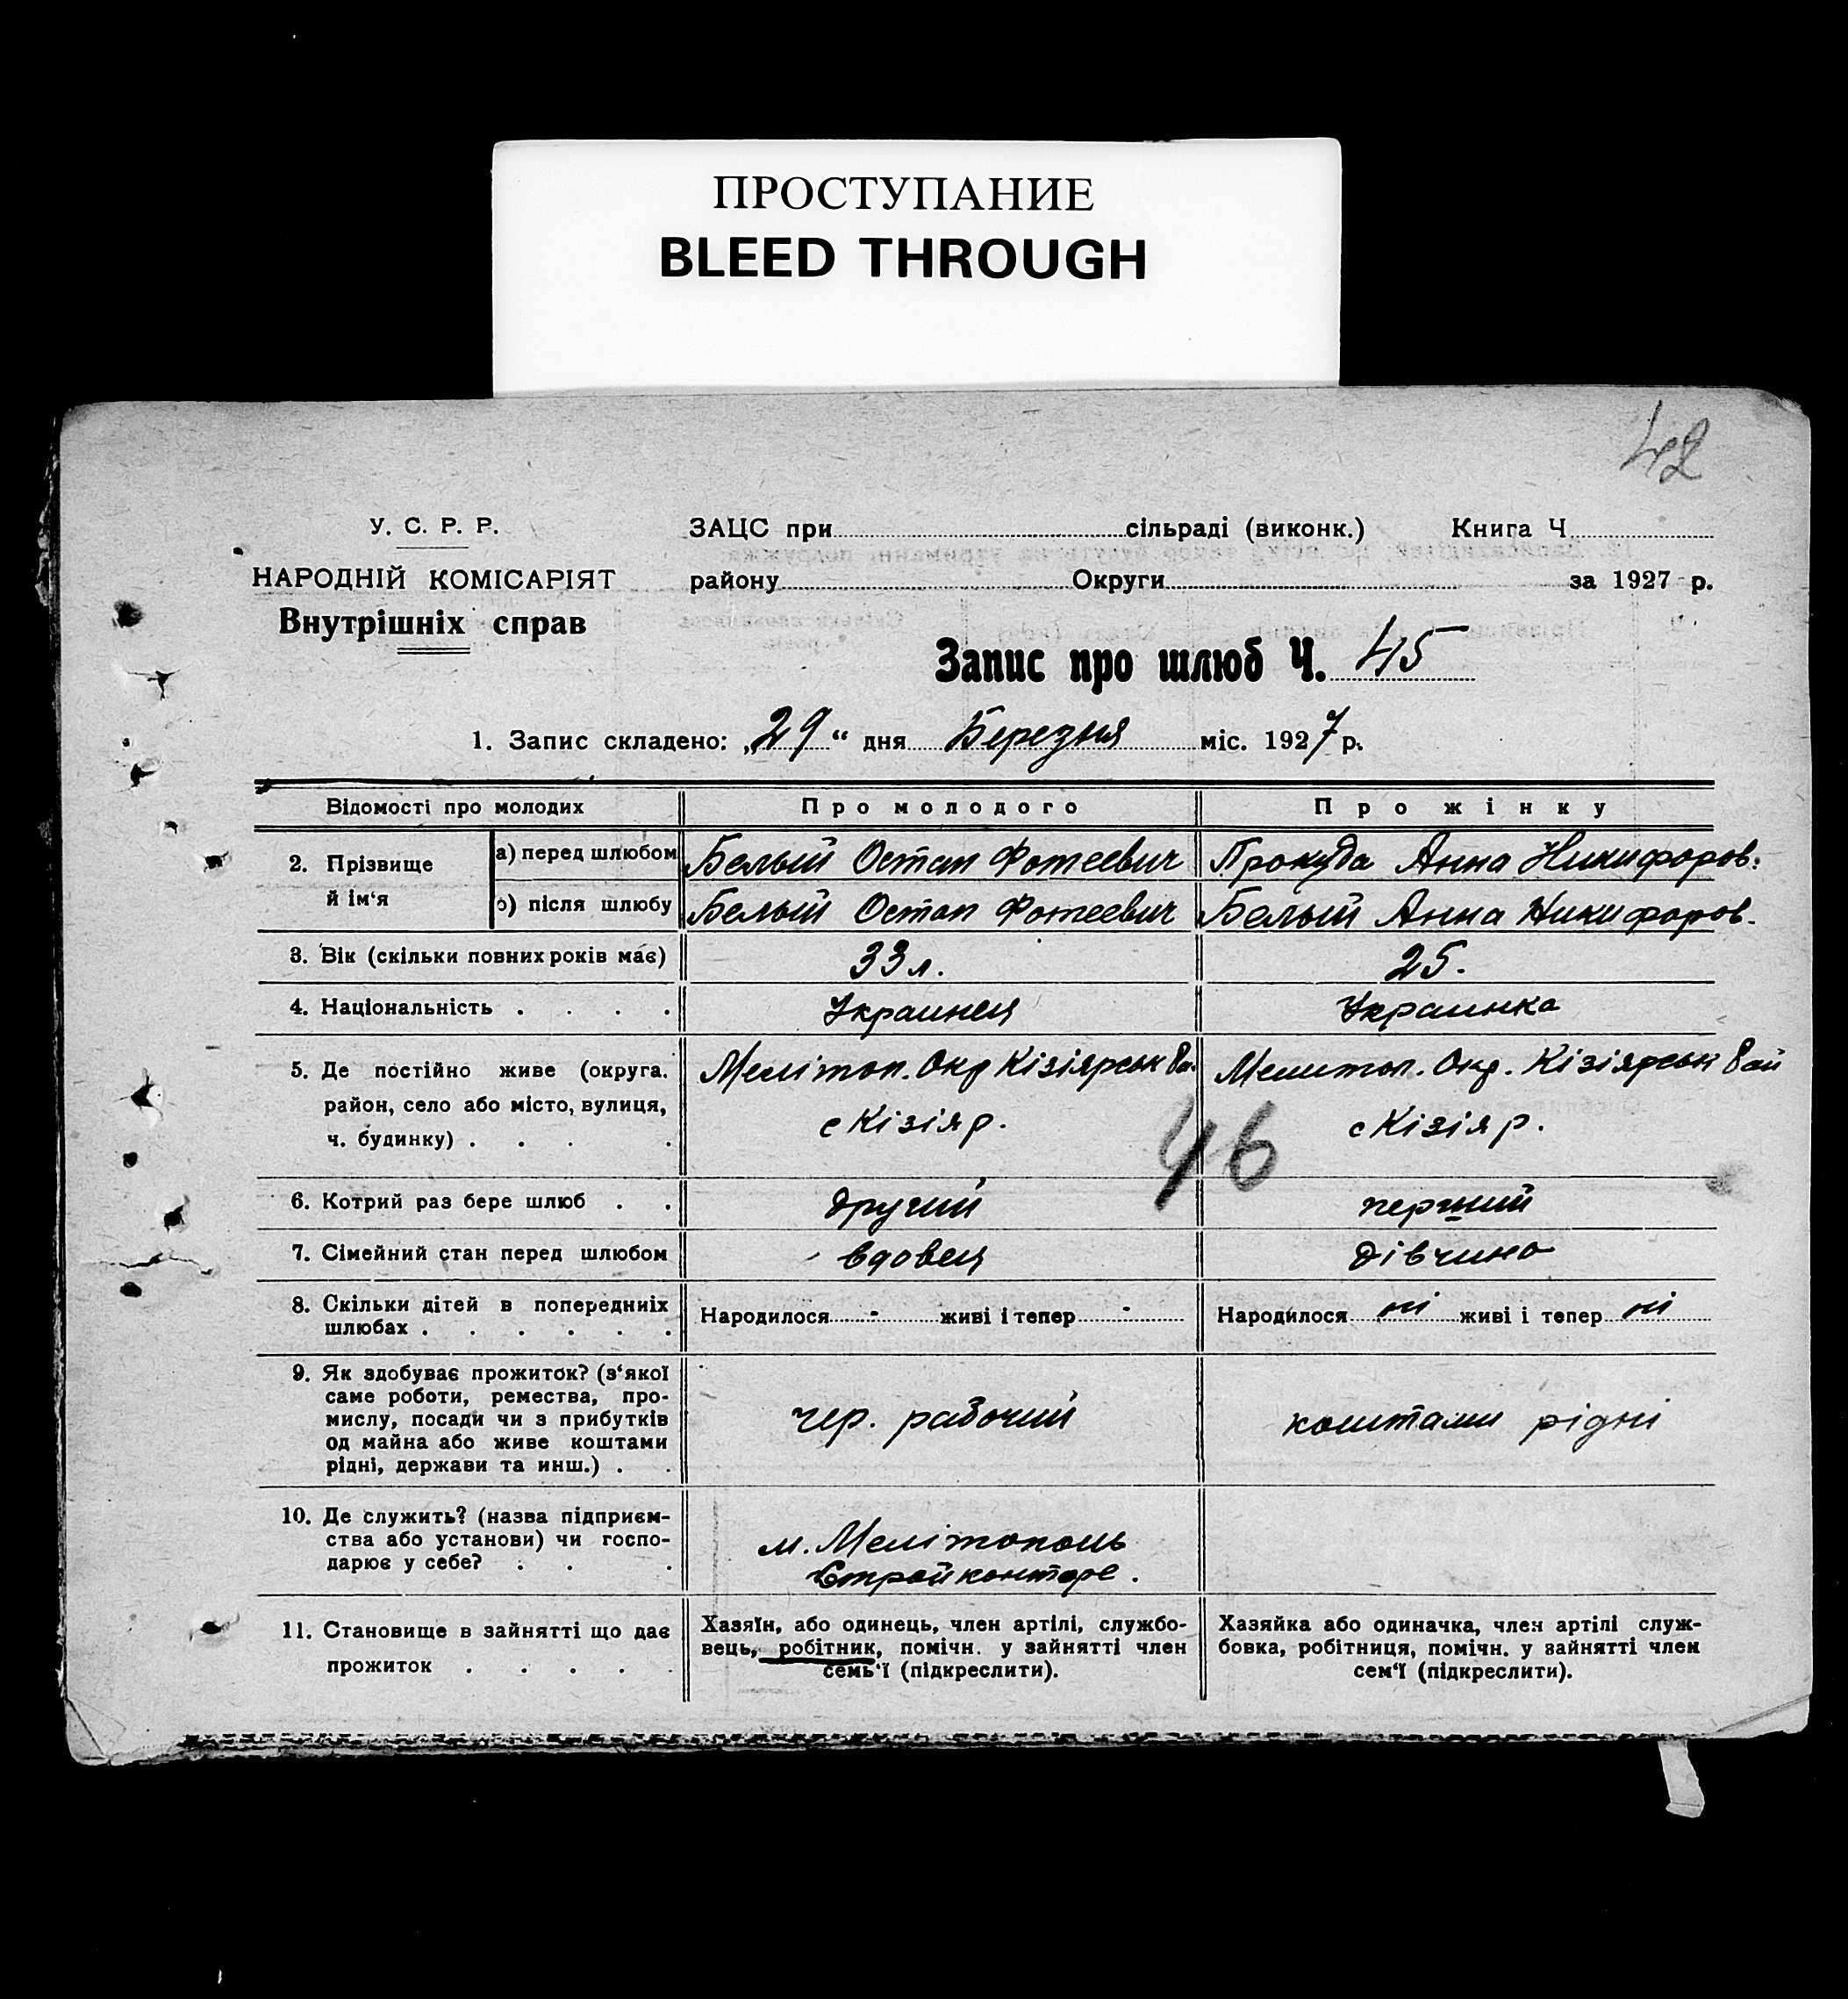 ПРОСТУПАНИЕ
BLEED THROUGH
42
У. С. Р. Р.
НАРОДНІЙ КОМІСАРІЯТ
Внутрішніх справ
ЗАЦС при сільраді (виконк.) Книга Ч
району Округи за 1927 р.
Запис про шлюб Ч. 45
1. Запис складено: „29“ дня Березня міс. 1927 р.
Відомості про молодих Про молодого Про жінку
2. Прізвище й ім‘я а) перед шлюбом Белый Остап Фотеевич Прокуда Анна Никифоров.
б) після шлюбу Белый Остап Фотеевич Белый Анна Никифоров.
3. Вік (скільки повних років має) 33 л. 25.
4. Національність . . . . Украинец Украинка
5. Де постійно живе (округа, Мелітоп. Окр Кізіярськ Ра. Мелитоп. Окр. Кізіярськ Рай
район, село або місто, вулиця, с Кізіяр. с Кізіяр.
ч. будинку) . . . .
46
6. Котрий раз бере шлюб . . другий перший
7. Сімейний стан перед шлюбом вдовец дівчина
8. Скільки дітей в попередниіх Народилося - живі і тепер - Народилося ні живі і тепер ні
шлюбах . . . . . .
9. Як здобуває прожиток? (з‘якої
саме роботи, ремества, про-
мислу, посади чи з прибутків чер. рабочий коштами рідні
од майна або живе коштами
рідні, держави та инш.) . .
10. Де служить? (назва підприєм-
ства або установи) чи госпо- м. Мелітополь
дарює у себе? . . . Стройконторе.
11. Становище в зайнятті що дає
прожиток . . . . .
Хазяїн, або одинець, член артілі, службо-
вець, робітник, помічн. у зайнятті член
семь‘ї (підкреслити).
Хазяйка або одиначка, член артілі служ-
бовка, робітниця, помічн. у зайнятті член
сем‘ї (підкреслити).